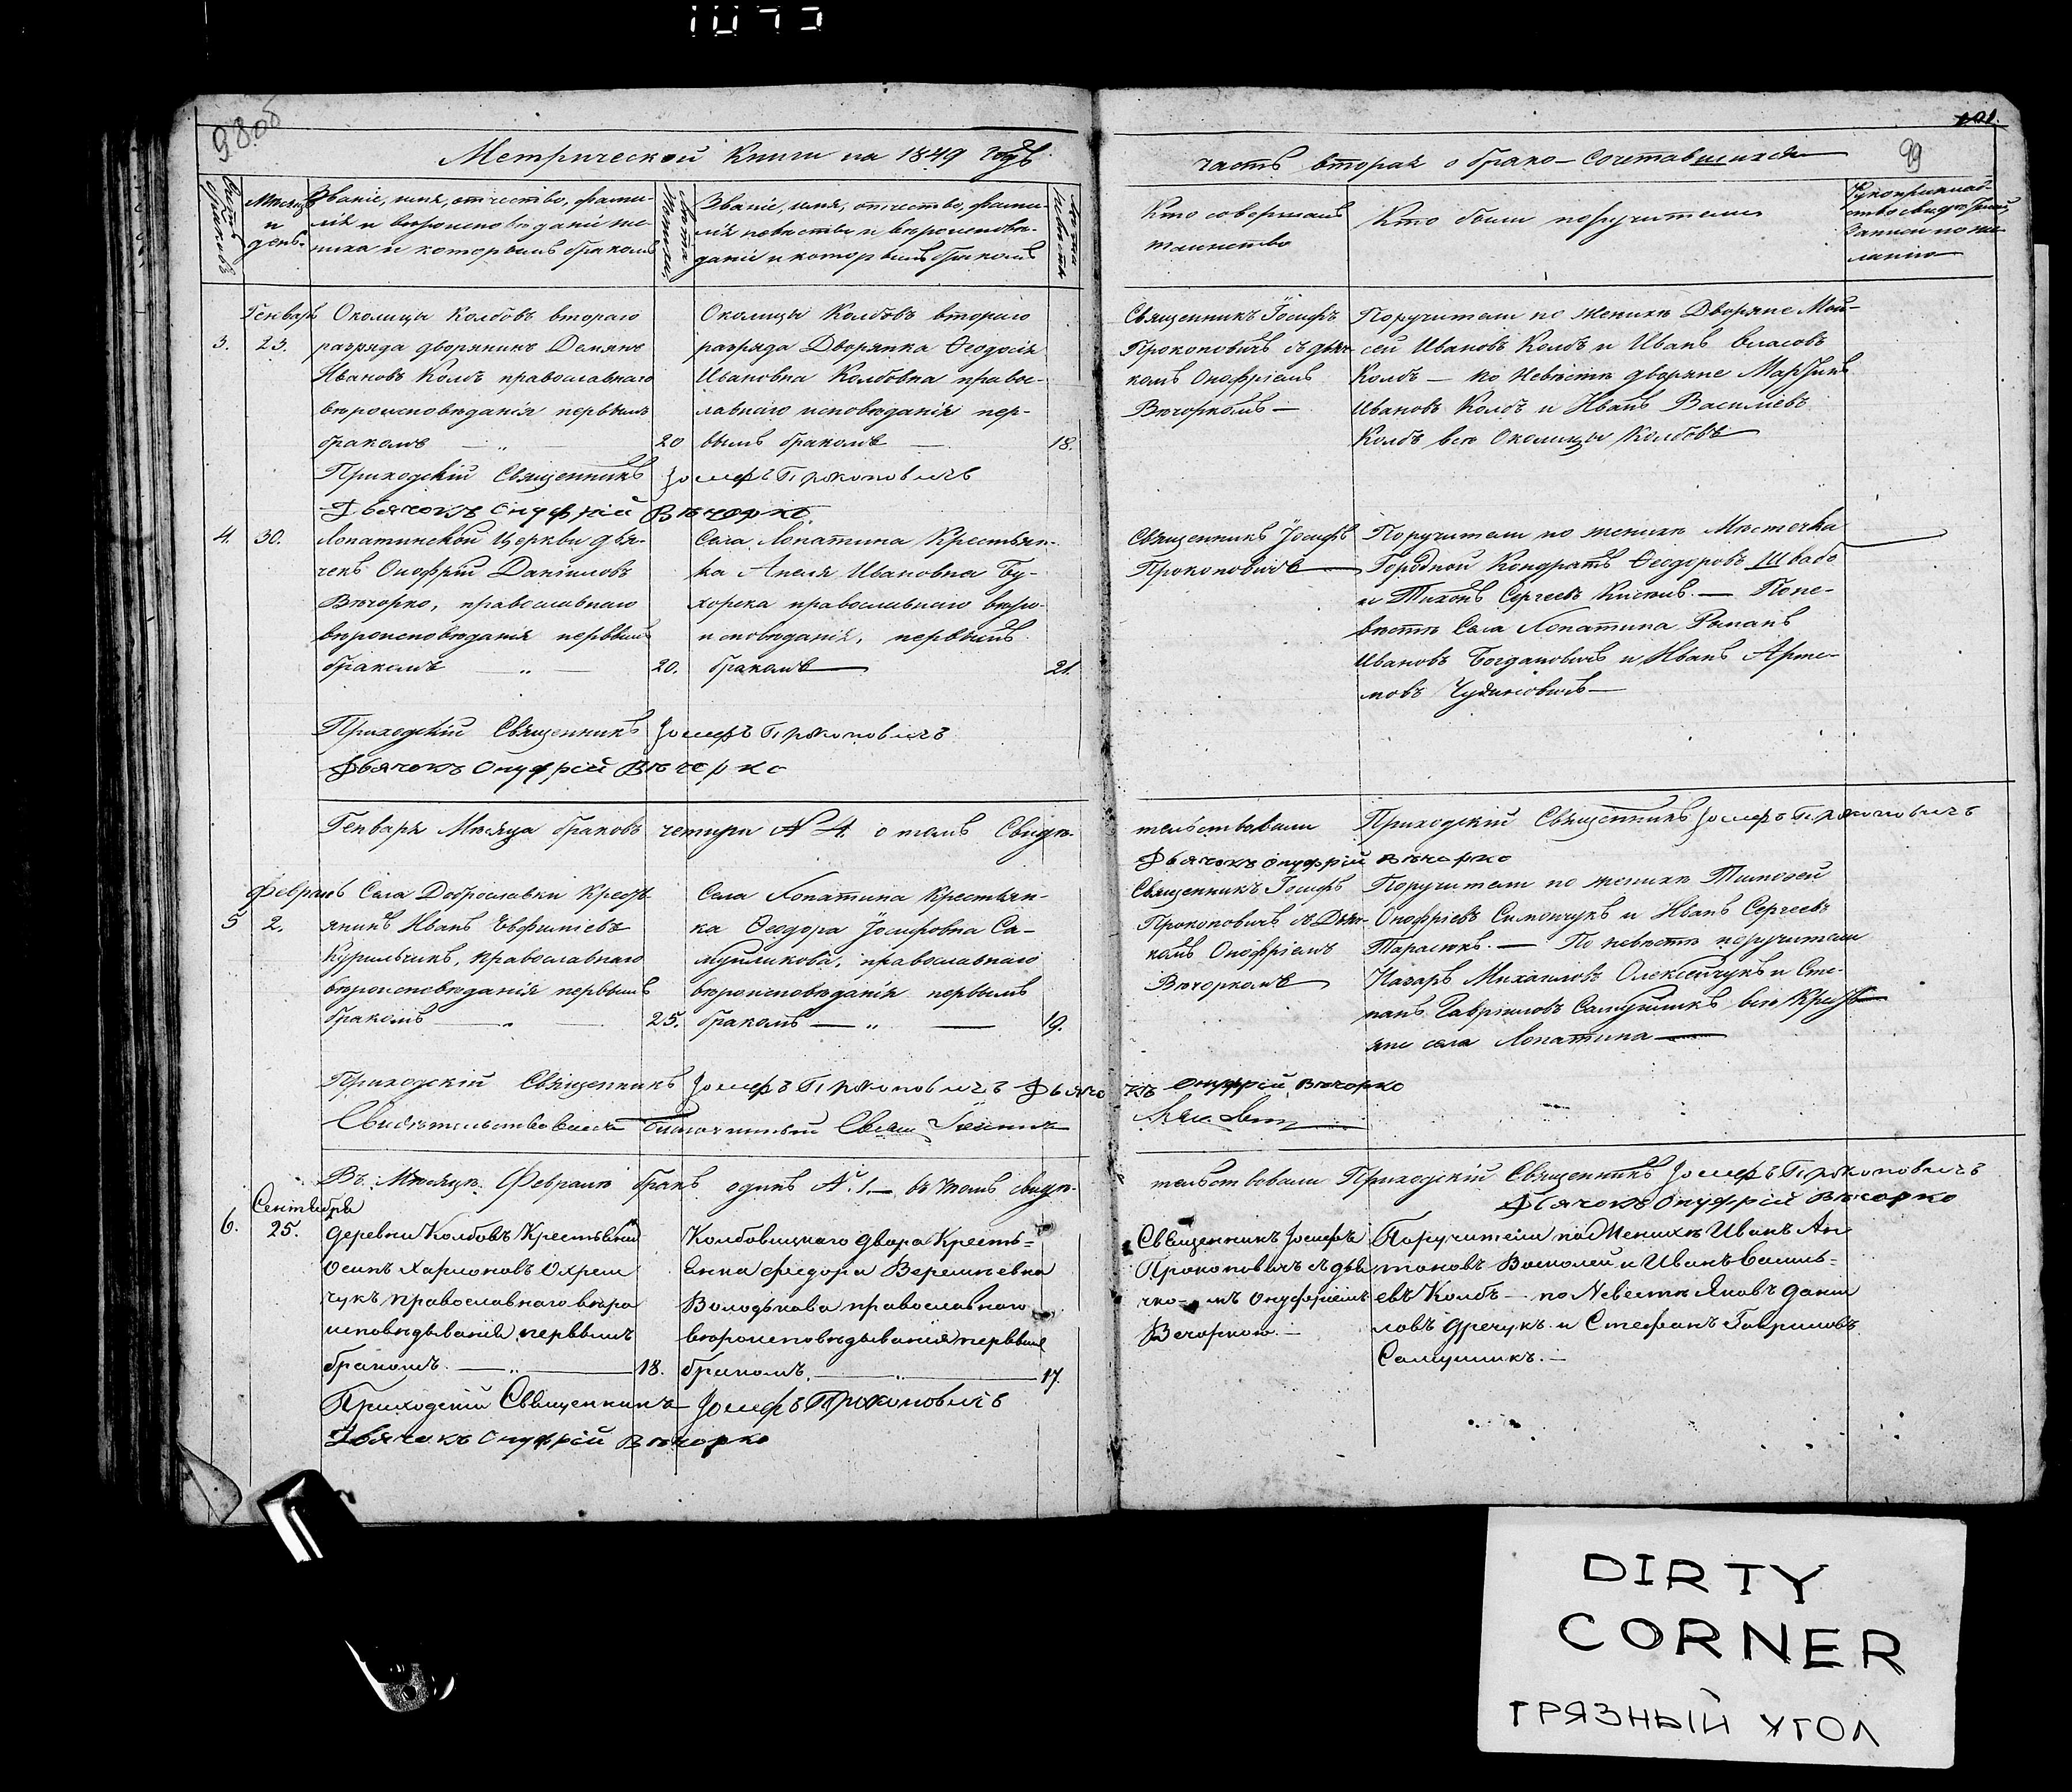 98об
Метрической Книги на 1849 годъ
часть вторая о брако-сочетавшихся
99
Месяцъ и день.
Званіе, имя, отчество, фами-
лія и вероисповеданіе же-
ниха и которымъ бракомъ
Лета жениха.
Званіе, имя, отчество, фами-
лія невесты и вероиспове-
даніе и которымъ бракомъ
Лета невесты
Кто совершалъ
таинство
Кто были поручители
Генварь
3. 23.
Околицы Колбовъ втораго
разряда дворянинъ Демянъ
Ивановъ Колбъ православнаго
вероисповеданія первымъ
бракомъ — 20
Околицы Колбовъ втораго
разряда Дворянка Ѳеодосія
Ивановна Колбовна правос-
лавнаго исповеданія пер-
вымъ бракомъ — 18.
Священникъ Іосифъ
Прокоповичъ съ дьяч-
комъ Онофріемъ
Вечоркомъ —
Поручители по женихе Дворяне Мой-
сей Ивановъ Колбъ и Иванъ Власовъ
Колбъ — по Невесте дворяне
Ивановъ Колбъ и Иванъ Василіевъ
Колбъ все Околицы Колбовъ
Приходскій Священникъ Іосифъ Прокоповичъ
Дьячокъ Онуфрій Вечорко
4. 30.
Лопатинской Церкви дья-
чекъ Онофрій Даніиловъ
Вечорко, православнаго
вероисповеданія первымъ
бракомъ — 20.
Села Лопатина Крестьян-
ка Анеля Ивановна Бу-
хорека православнаго веро-
исповеданія, первымъ
бракомъ — 21.
Священникъ Іосифъ
Прокоповичъ
Поручители по женихе Местечка
Городной Кондратъ Ѳеодоровъ Швабо
и Тихонъ Сергеевъ — По не-
весте Села Лопатина Романъ
Ивановъ Богдановичъ и Иванъ Арте-
мовъ
Приходскій Священникъ Іосифъ Прокоповичъ
Дьячокъ Онуфрій Вечорко
Генваря Месяца браковъ четыри № 4 о томъ Свиде-
тельствовали Приходскій Священникъ Іосифъ Прокоповичъ
Дьячокъ Онуфрій Вечорко
Февраль
5 2.
Села Доброславки Кресть-
янинъ Иванъ Евфиміевъ
Курильчикъ, православнаго
вероисповеданія первымъ
бракомъ — 25.
Села Лопатина Крестьян-
ка Ѳеодора Іосифовна Са-
муйликова, православнаго
вероисповеданія первымъ
бракомъ — 19.
Священникъ Іосифъ
Прокоповичъ съ Дьяч-
комъ Онофріемъ
Вечоркомъ
Поручители по женихе Тимофей
Онофріевъ Симончукъ и Иванъ Сергеевъ
Тарасюкъ. — По невесте поручители
Назаръ Михаиловъ Олексейчукъ и Сте-
панъ Гавріиловъ Самуйликъ все Кресть-
яне села Лопатина
Приходскій Священникъ Іосифъ Прокоповичъ Дьячокъ Онуфрій Вечорко
Свидетельствовалъ Благочинный Свящ.
Въ Месяце Феврале бракъ одинъ № 1 — въ томъ свиде-
тельствовали Приходскій Священникъ Іосифъ Прокоповичъ
Дьячокъ Онуфрій Вечорко
Сентябрь
6. 25.
Деревни Колбовъ Крестьянинъ
Осипъ Харионовъ Охрем
чукъ православнаго веро
исповедыванія первымъ
бракомъ. — 18.
Колбовицкаго двора Кресть=
янка Федора Веремѣевна
Володькова православнаго
вероисповедыванія первымъ
бракомъ. — 17.
Священникъ Іосифъ
Прокоповичъ съ дья
чко- мъ Онуфріемъ
Вечоркою. —
Поручители по Женихе Иванъ Ан
тоновъ и Иванъ Василь=
евъ Колбъ — по Невесте Яковъ Дани
ловъ Дречукъ и Стефанъ Гавриловъ
Самуйликъ. —
Приходскій Священникъ Іосифъ Прокоповичъ
Дьячокъ Онуфрій Вечорко
DIRTY
CORNER
ГРЯЗНЫЙ УГОЛ